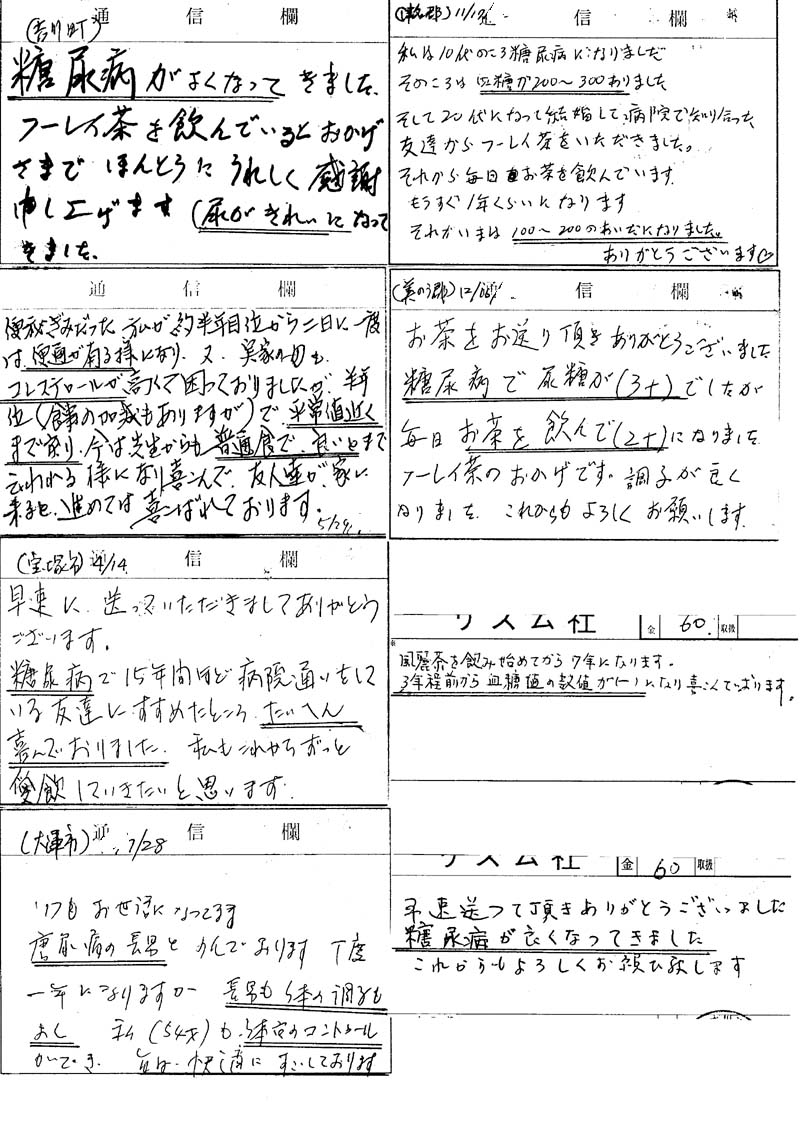 通信欄
(吉川町)
糖尿病がよくなってきました、
フーレイ茶を飲んでいるとおかげ
さまでほんとうにうれしく感謝
申し上げます(尿がきれいになって
きました。
通信欄
便秘ぎみだった 私が約半年目位から二日に一度
は、便通が有る様になり、又、実家の母も
コレステロールが高くて困っておりましたが、半年
位(食事の加減もありますが)で、平常値近く
まで戻り、今は先生からも普通食で、良いとまで
云われる様になり喜こんで、友人達が、家に
来ると、進めては喜こばれております。
5/29
通信欄
(宝塚市) 4/14
早速に、送っていただきましてありがとう
ございます。
糖尿病で15年間ほど病院通いをして
いる友達にすすめたところ、たいへん
喜んでおりました。私もこれからずっと
愛飲していきたいと思います。
通信欄
(大津市) 7/28
いつもお世話になってます
唐尿病の長男とのんでおります 丁度
一年になりますが 長男も体の調子も
よく 私(54才)も、体重のコントロール
ができ、毎日、快適にすごしております
信欄
11/17
私は10代のころ糖尿病になりました
そのころは血糖が200〜300ありました
そして20代になって結婚して、病院で知り合った
友達からフーレイ茶をいただきました。
それから毎日お茶を飲んでいます。
もうすぐ1年くらいになります
それがいまは100〜200のあいだになりました。
ありがとうございます♡
信欄
(美の郷) 12/
お茶をお送り頂きありがとうございました
糖尿病で尿糖が(3+)でしたが
毎日お茶を飲んで(2+)になりました
フーレイ茶のおかげです。調子が良く
なりました これからもよろしくお願いします
リズム社 金 60. 取扱
※
風麗茶を飲み始めてから7年になります。
3年程前から血糖値の数値が(-)になり喜こんでおります。
リズム社 金 60 取扱
早速送って頂きありがとうございました
糖尿病が良くなってきました
これからもよろしくお願い致します